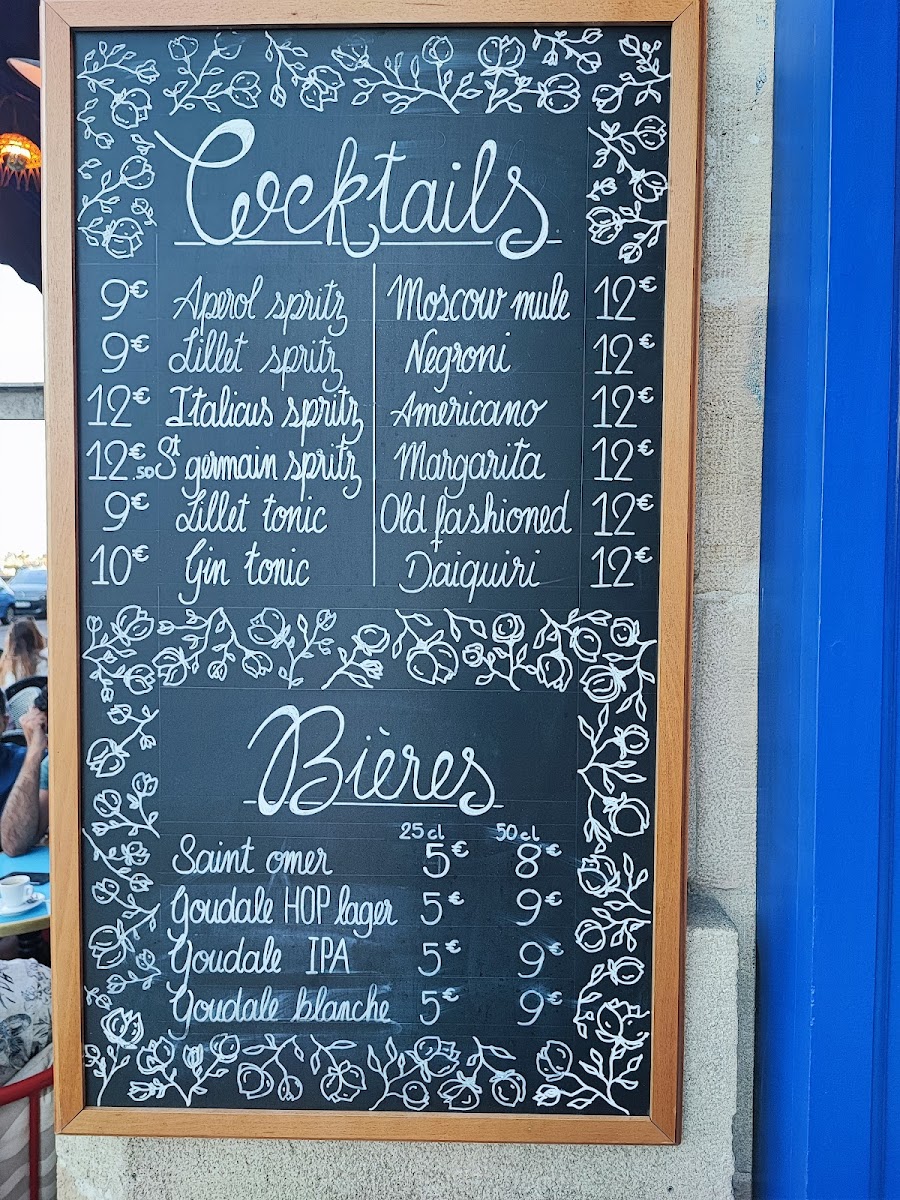 Cocktails
9€ Aperol spritz Moscow mule 12€
9€ Lillet spritz Negroni 12€
12€ Italicus spritz Americano 12€
12€.50 St germain spritz Margarita 12€
9€ Lillet tonic Old fashioned 12€
10€ Gin tonic Daiquiri 12€
Bières
25 cl 50 cl
Saint omer 5€ 8€
Goudale HOP lager 5€ 9€
Goudale IPA 5€ 9€
Goudale blanche 5€ 9€